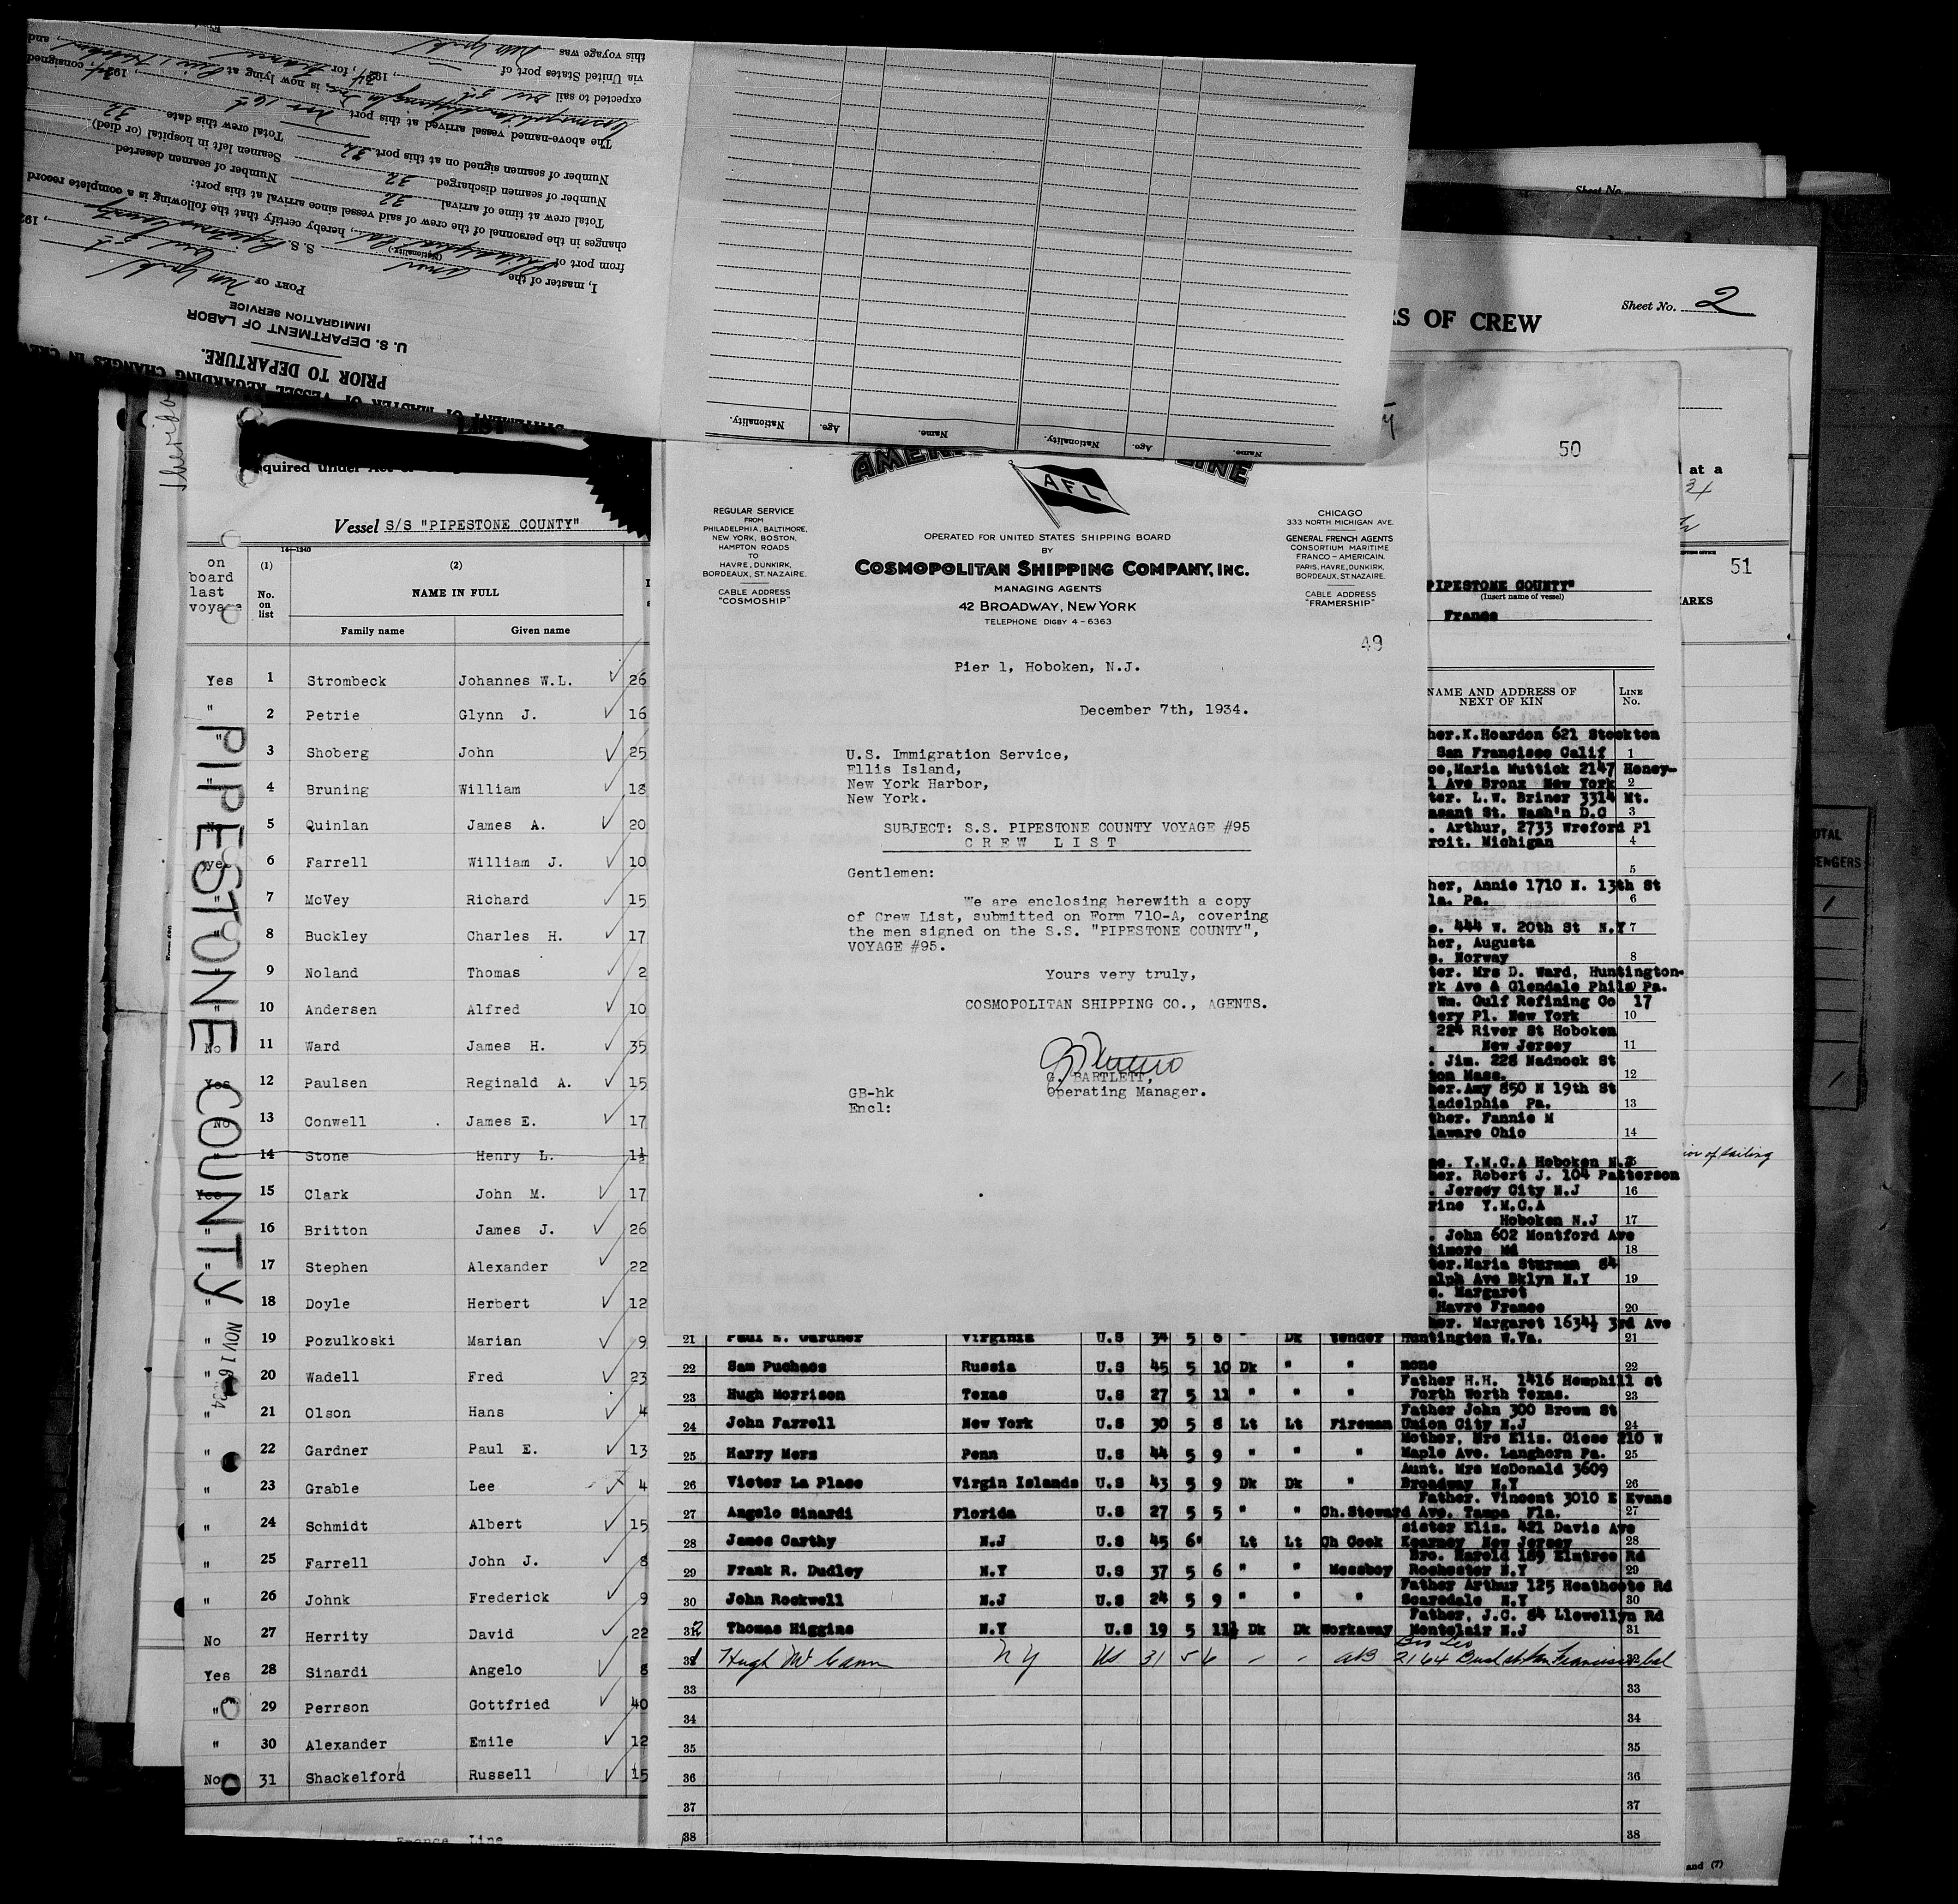 this voyage was New York
via United States port of
expected to sail Dec 5th, 1934, for France
The above-named vessel arrived at this port Nov 16th
Number of seamen signed on at this port 32
Number of seamen discharged 32
Total crew at time of arrival 32
Total crew this date 32
Seamen left in hospital (or died)
Number of seamen deserted
changes in the personnel of the crew of said vessel since arrival at this port:
hereby certify that the following is a complete record
from port of
(Nationality)
I, master of the
S. S. Pipestone County
PORT OF New York
IMMIGRATION SERVICE
U. S. DEPARTMENT OF LABOR
PRIOR TO DEPARTURE.
Name. Age. Nationality. Name. Age. Nationality.
Sheet No.
Sheet No. 2
OF CREW
50
at a
51
Vessel S/S "PIPESTONE COUNTY"
14-1240
on board last voyage
(1) (2)
No. on list
NAME IN FULL
Family name Given name
Yes 1 Strombeck Johannes W.L. 26
" 2 Petrie Glynn J. 16
" 3 Shoberg John 25
" 4 Bruning William 18
5 Quinlan James A. 20
6 Farrell William J. 10
" 7 McVey Richard 15
" 8 Buckley Charles H. 17
" 9 Noland Thomas 2
" 10 Andersen Alfred 10
No 11 Ward James H. 35
Yes 12 Paulsen Reginald A. 15
No 13 Conwell James E. 17
14 Stone Henry L. 1½
Yes 15 Clark John M. 17
" 16 Britton James J. 26
" 17 Stephen Alexander 22
" 18 Doyle Herbert 12
" 19 Pozulkoski Marian 9
" 20 Wadell Fred 23
" 21 Olson Hans 4
" 22 Gardner Paul E. 13
" 23 Grable Lee 4
" 24 Schmidt Albert 15
" 25 Farrell John J. 8
" 26 Johnk Frederick 9
No 27 Herrity David 22
Yes 28 Sinardi Angelo 8
" 29 Perrson Gottfried 40
" 30 Alexander Emile 12
No 31 Shackelford Russell 15
PIPESTONE COUNTY
France Line
AFL
REGULAR SERVICE
FROM
PHILADELPHIA, BALTIMORE,
NEW YORK, BOSTON,
HAMPTON ROADS
TO
HAVRE, DUNKIRK,
BORDEAUX, ST. NAZAIRE.
CABLE ADDRESS
"COSMOSHIP"
OPERATED FOR UNITED STATES SHIPPING BOARD
BY
COSMOPOLITAN SHIPPING COMPANY, INC.
MANAGING AGENTS
42 BROADWAY, NEW YORK
TELEPHONE DIGBY 4-6363
CHICAGO
333 NORTH MICHIGAN AVE.
GENERAL FRENCH AGENTS
CONSORTIUM MARITIME
FRANCO-AMERICAIN.
PARIS, HAVRE, DUNKIRK,
BORDEAUX, ST. NAZAIRE.
CABLE ADDRESS
"FRAMERSHIP"
49
Pier 1, Hoboken, N.J.
December 7th, 1934.
U.S. Immigration Service,
Ellis Island,
New York Harbor,
New York.
SUBJECT: S.S. PIPESTONE COUNTY VOYAGE #95
CREW LIST
Gentlemen:
We are enclosing herewith a copy
of Crew List, submitted on Form 710-A, covering
the men signed on the S.S. "PIPESTONE COUNTY",
VOYAGE #95.
Yours very truly,
COSMOPOLITAN SHIPPING CO., AGENTS.
G. BARTLETT,
Operating Manager.
GB-hk
Encl:
PIPESTONE COUNTY"
(Insert name of vessel)
France
NAME AND ADDRESS OF
NEXT OF KIN
LINE
No.
her.K.Hearden 621 Stockton
San Francisco Calif 1
ce,Maria Muttick 2147 Honey-
l Ave Bronx New York 2
ter. L.W. Briner 3314 Mt.
asant St. Wash'n D.C 3
. Arthur, 2733 Wreford Pl
roit. Michigan 4
5
her, Annie 1710 N. 13th St
la. Pa. 6
. 444 W. 20th St N.Y 7
her, Augusta
. Norway 8
ter. Mrs D. Ward, Huntington-
rk Ave & Glendale Phila Pa.
Wm. Gulf Refining Co 17
tery Pl. New York 10
224 River St Hoboken
New Jersey 11
. Jim. 228 Nadnock St
ton Mass. 12
her.Amy 850 N 19th St
ladelphia Pa. 13
ther. Fannie M
laware Ohio 14
. Y.M.C.A Hoboken N.J
her. Robert J. 104 Patterson
. Jersey City N.J 16
rine Y.M.C.A
Hoboken N.J 17
. John 602 Montford Ave
timore Md 18
ter.Maria Sturmen 84
alph Ave Bklyn N.Y 19
. Margaret
Havre France 20
her. Margaret 1634½ 3rd Ave
21 Paul E. Gardner Virginia U.S 34 5 6 " Dk tender Huntington W.Va. 21
22 Sam Puchaes Russia U.S 45 5 10 Dk " " none 22
Father H.H. 1416 Hemphill st
23 Hugh Morrison Texas U.S 27 5 11 " " " Forth Worth Texas. 23
Father John 300 Brown St
24 John Farrell New York U.S 30 5 8 Lt Lt Fireman Union City N.J 24
Mother, Mrs Elis. Giese 210 W
25 Harry Merz Penn U.S 44 5 9 " " " Maple Ave. Langhorn Pa. 25
Aunt. Mrs McDonald 3609
26 Victor La Place Virgin Islands U.S 43 5 9 Dk Dk " Broadway N.Y 26
Father. Vincent 3010 E Evans
27 Angelo Sinardi Florida U.S 27 5 5 " " Ch.Steward Ave. Tampa Fla. 27
sister Elis. 421 Davis Ave
28 James Carthy N.J U.S 45 6' Lt Lt Ch Cook Kearney New Jersey 28
Bro. Harold 189 Elmtree Rd
29 Frank R. Dudley N.Y U.S 37 5 6 " " Messboy Rochester N.Y 29
Father Arthur 125 Heathcote Rd
30 John Rockwell N.J U.S 24 5 9 " " " Scarsdale N.Y 30
Father, J.C. 84 Llewellyn Rd
31 Thomas Higgins N.Y U.S 19 5 11½ Dk Dk Workaway Montclair N.J 31
Bro Leo
32 Hugh McCann NY US 31 5 6 " " AB 2164 Bush St San Francisco Cal
33 33
34 34
35 35
36 36
37 37
38 38
and (7)